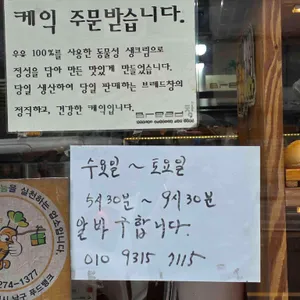 케익 주문받습니다.
우유 100%를 사용한 동물성 생크림으로
정성을 담아 만든 맛있게 만들었습니다.
당일 생산하여 당일 판매하는 브레드창의
정직하고, 건강한 케익입니다.
수요일 ~ 토요일
5시 30분 ~ 9시 30분
알바 구합니다.
010 9315 7115
을 실천하는 업소입니다.
274-1377
남구 푸드뱅크